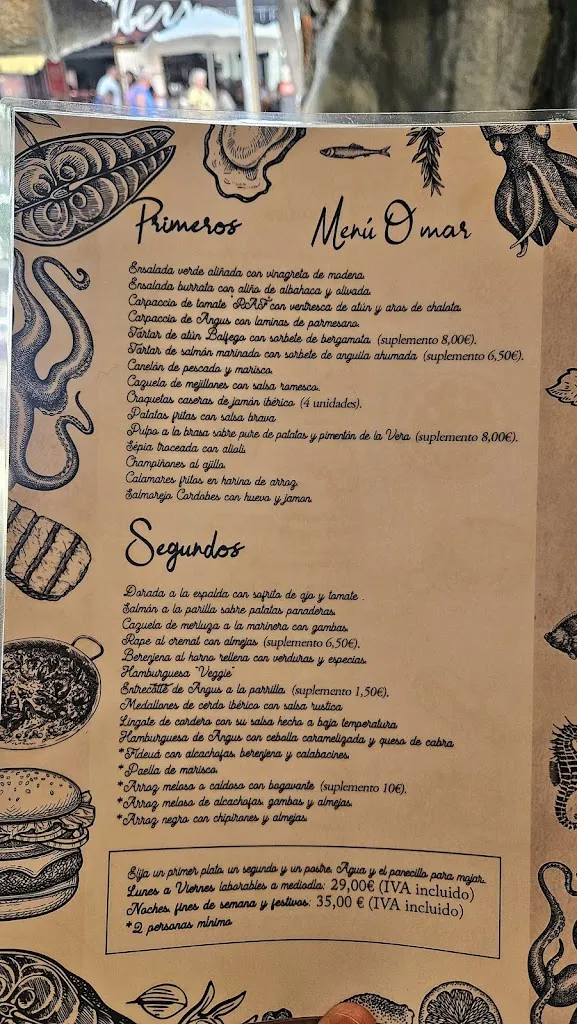 Primeros Menú Omar
Ensalada verde aliñada con vinagreta de modena.
Ensalada burrata con aliño de albahaca y olivada.
Carpaccio de tomate "RAF" con ventresca de atún y aros de chalota.
Carpaccio de Angus con laminas de parmesano.
Tártar de atún Balfego con sorbete de bergamota (suplemento 8,00€).
Tártar de salmón marinado con sorbete de anguila ahumada (suplemento 6,50€).
Canelón de pescado y marisco.
Cazuela de mejillones con salsa romesco.
Croquetas caseras de jamón ibérico (4 unidades).
Patatas fritas con salsa brava
Pulpo a la brasa sobre pure de patatas y pimentón de la Vera (suplemento 8,00€).
Sépia troceada con alioli.
Champiñones al ajillo.
Calamares fritos en harina de arroz.
Salmorejo Cordobes con huevo y jamon.
Segundos
Dorada a la espalda con sofrito de ajo y tomate .
Salmón a la parilla sobre patatas panaderas.
Cazuela de merluza a la marinera con gambas.
Rape al cremat con almejas (suplemento 6,50€).
Berenjena al horno rellena con verduras y especias.
Hamburguesa "Veggie"
Entrecotte de Angus a la parrilla (suplemento 1,50€).
Medallones de cerdo ibérico con salsa rustica
Lingote de cordero con su salsa hecho a baja temperatura
Hamburguesa de Angus con cebolla caramelizada y queso de cabra
*Fideuá con alcachofas, berenjena y calabacines.
*Paella de marisco.
*Arroz meloso o caldoso con bogavante (suplemento 10€).
*Arroz meloso de alcachofas, gambas y almejas.
*Arroz negro con chipirones y almejas.
Elija un primer plato, un segundo y un postre, Agua y el panecillo para mojar.
Lunes a Viernes laborables a mediodía: 29,00€ (IVA incluido)
Noches, fines de semana y festivos: 35,00 € (IVA incluido)
*2 personas mínimo